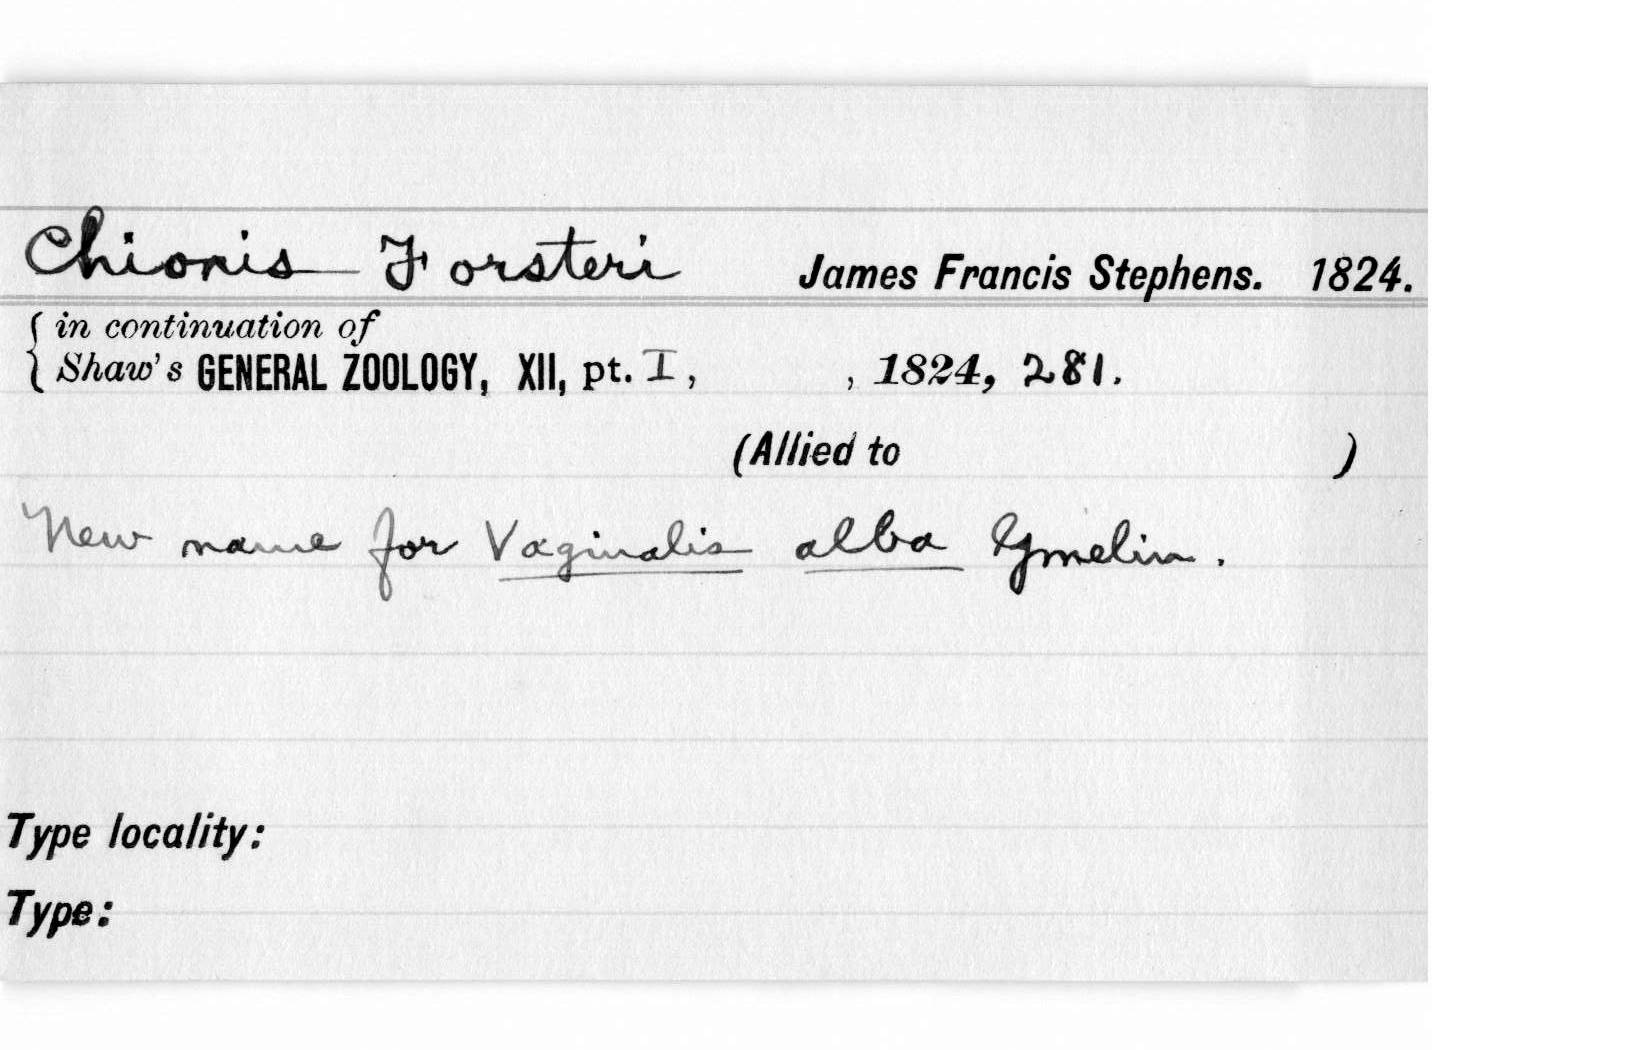 Chionis Forsteri James Francis Stephens. 1824.
{ in continuation of
{ Shaw's GENERAL ZOOLOGY, XII, pt. I, , 1824, 281.
(Allied to )
New name for Vaginalis alba Gmelin.
Type locality:
Type: